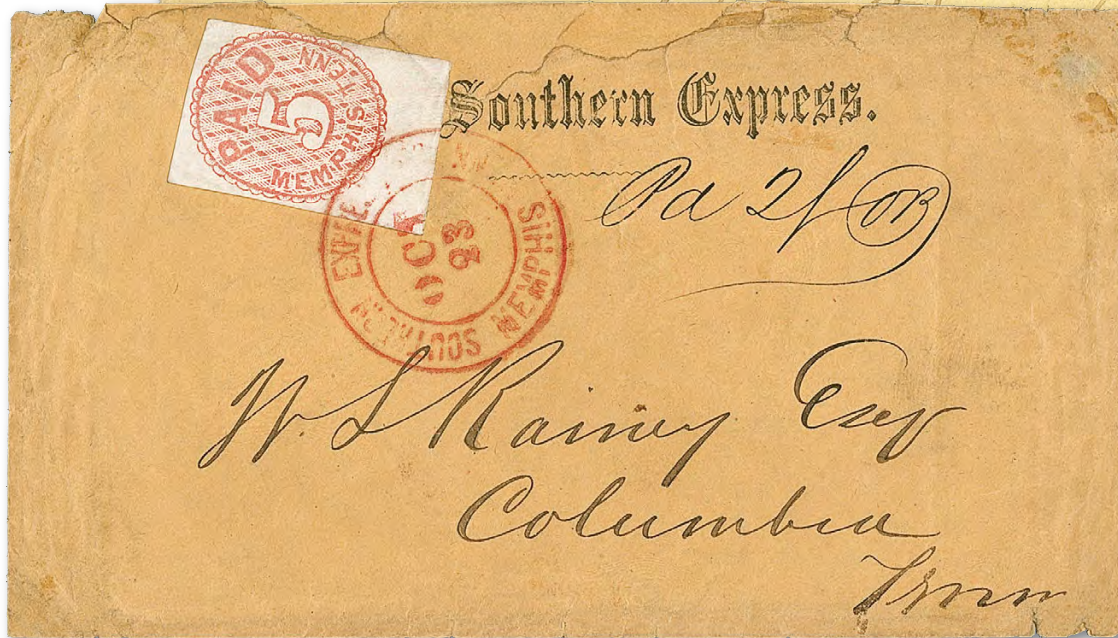 PAID
5
MEMPHIS, TENN
Southern Express.
Pd 2/ OB
SOUTHERN EXPRE. MEMPHIS
OCT
23
W L Rainey Esq
Columbia
Tenn